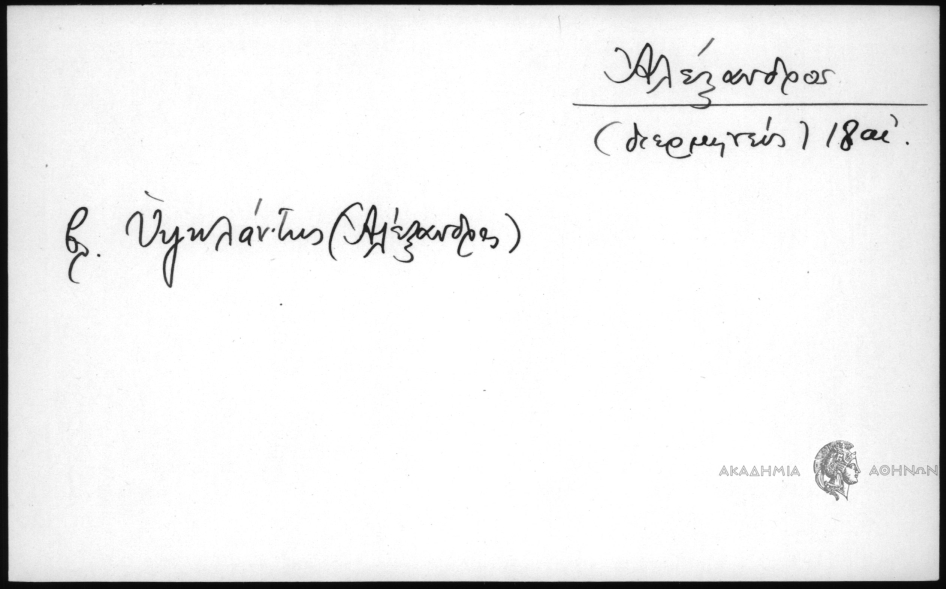 Ἀλέξανδρος
(διερμηνεύς) 18 αἰ.
βλ. Ὑψηλάντης (Ἀλέξανδρος)
ΑΚΑΔΗΜΙΑ ΑΘΗΝΩΝ